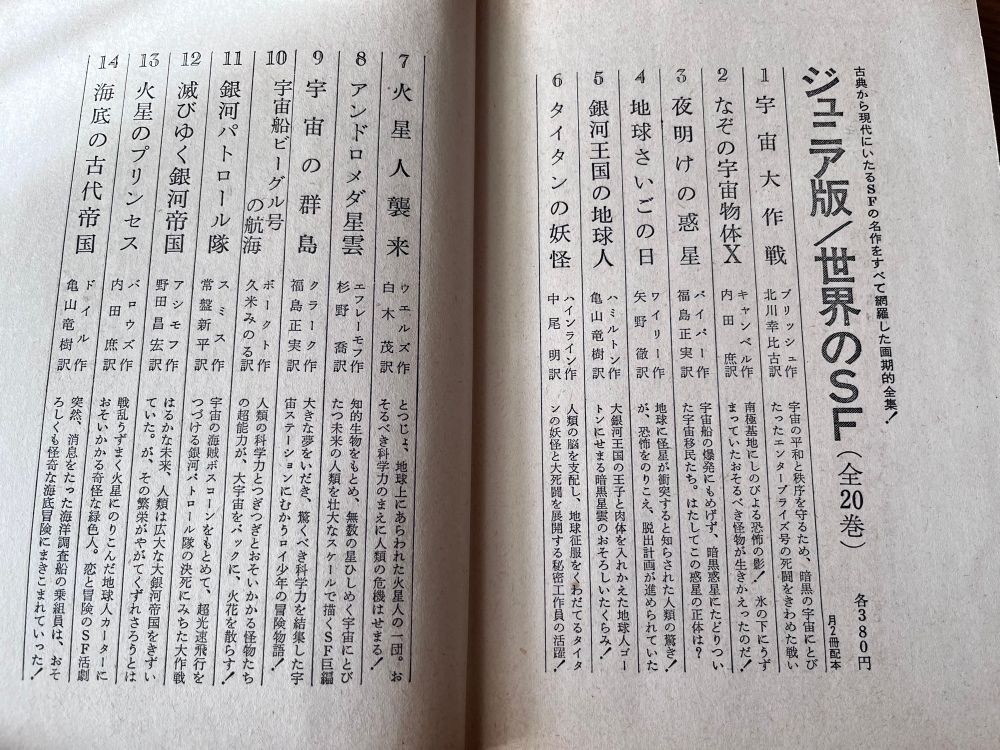 古典から現代にいたるSFの名作をすべて網羅した画期的全集!
ジュニア版/世界のSF(全20巻)
各380円
月2冊配本
1 宇宙大作戦
ブリッシュ作
北川幸比古訳
宇宙の平和と秩序を守るため、暗黒の宇宙にとび
たったエンタープライズ号の死闘をきわめた戦い
2 なぞの宇宙物体X
キャンベル作
内田庶訳
南極基地にしのびよる恐怖の影! 氷の下にうず
まっていたおそるべき怪物が生きかえったのだ!
3 夜明けの惑星
パイパー作
福島正実訳
宇宙船の爆発にもめげず、暗黒惑星にたどりつい
た宇宙移民たち。はたしてこの惑星の正体は?
4 地球さいごの日
ワイリー作
矢野徹訳
地球に怪星が衝突すると知らされた人類の驚き!
が、恐怖をのりこえ、脱出計画が進められていた
5 銀河王国の地球人
ハミルトン作
亀山竜樹訳
大銀河王国の王子と肉体を入れかえた地球人ゴー
トンにせまる暗黒星雲のおそろしいたくらみ!
6 タイタンの妖怪
ハインライン作
中尾明訳
人類の脳を支配し、地球征服をくわだてるタイタ
ンの妖怪と大死闘を展開する秘密工作員の活躍!
7 火星人襲来
ウエルズ作
白木茂訳
とつじょ、地球上にあらわれた火星人の一団。お
そるべき科学力のまえに人類の危機はせまる!
8 アンドロメダ星雲
エフレーモフ作
杉野喬訳
知的生物をもとめ、無数の星ひしめく宇宙にとび
たつ未来の人類を壮大なスケールで描くSF巨編
9 宇宙の群島
クラーク作
福島正実訳
大きな夢をいだき、驚くべき科学力を結集した宇
宙ステーションにむかうロイ少年の冒険物語!
10 宇宙船ビーグル号
の航海
ボークト作
久米みのる訳
人類の科学力とつぎつぎとおそいかかる怪物たち
の超能力が、大宇宙をバックに、火花を散らす!
11 銀河パトロール隊
スミス作
常盤新平訳
宇宙の海賊ボスコーンをもとめて、超光速飛行を
つづける銀河パトロール隊の決死にみちた大作戦
12 滅びゆく銀河帝国
アシモフ作
野田昌宏訳
はるかな未来、人類は広大な大銀河帝国をきずい
ていた。が、その繁栄がやがてくずれさろうとは
13 火星のプリンセス
バロウズ作
内田庶訳
戦乱うずまく火星にのりこんだ地球人カーターに
おそいかかる奇怪な緑色人。恋と冒険のSF活劇
14 海底の古代帝国
ドイル作
亀山竜樹訳
突然、消息をたった海洋調査船の乗組員は、おそ
ろしくも怪奇な海底冒険にまきこまれていった!